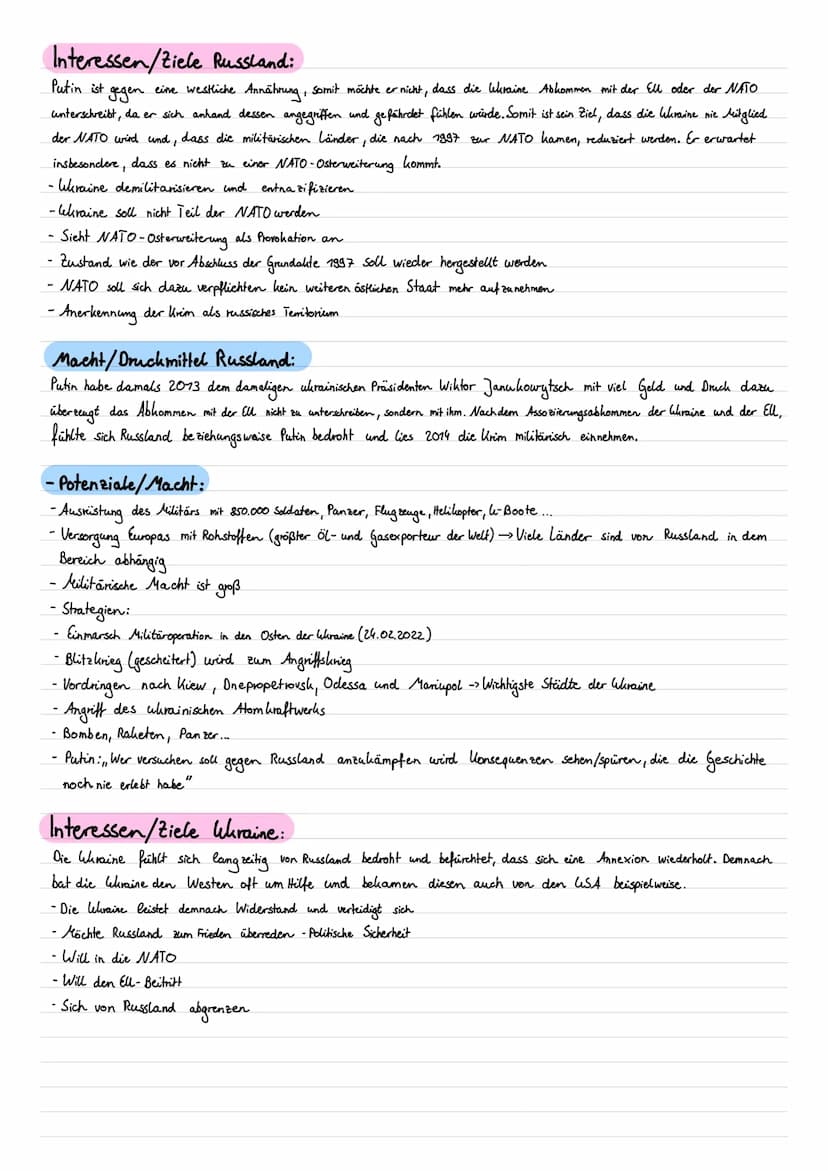 Interessen/Ziele Russland:
Putin ist gegen eine westliche Annährung, somit möchte er nicht, dass die Ukraine Abkommen mit der EU oder der NATO
unterschreibt, da er sich anhand dessen angegriffen und gefährdet fühlen würde. Somit ist sein Ziel, dass die Ukraine nie Mitglied
der NATO wird und, dass die militärischen Länder, die nach 1997 zur NATO kamen, reduziert werden. Er erwartet
insbesondere, dass es nicht zu einer NATO-Osterweiterung kommt.
- Ukraine demilitarisieren und entnazifizieren
- Ukraine soll nicht Teil der NATO werden
- Sieht NATO-Osterweiterung als Provokation an
- Zustand wie der vor Abschluss der Grundakte 1997 soll wieder hergestellt werden
- NATO soll sich dazu verpflichten kein weiteren östlichen Staat mehr aufzunehmen
- Anerkennung der Krim als russisches Territorium
Macht/Druckmittel Russland:
Putin habe damals 2013 dem damaligen ukrainischen Präsidenten Wiktor Janukowytsch mit viel Geld und Druck dazu
überzeugt das Abkommen mit der EU nicht zu unterschreiben, sondern mit ihm. Nach dem Assozierungsabkommen der Ukraine und der EU,
fühlte sich Russland beziehungsweise Putin bedroht und lies 2014 die Krim militärisch einnehmen.
- Potenziale/Macht:
- Ausrüstung des Militärs mit 850.000 Soldaten, Panzer, Flugzeuge, Helikopter, U-Boote...
- Versorgung Europas mit Rohstoffen (größter Öl- und Gasexporteur der Welt) → Viele Länder sind von Russland in dem
Bereich abhängig
- Militärische Macht ist groß
- Strategien:
- Einmarsch Militäroperation in den Osten der Ukraine (24.02.2022)
- Blitzkrieg (gescheitert) wird zum Angriffskrieg
- Vordringen nach Kiew, Dnepropetrovsk, Odessa und Mariupol → Wichtigste Städte der Ukraine
- Angriff des ukrainischen Atomkraftwerks
- Bomben, Raketen, Panzer...
- Putin: „Wer versuchen soll gegen Russland anzukämpfen wird Konsequenzen sehen/spüren, die die Geschichte
noch nie erlebt habe"
Interessen/Ziele Ukraine:
Die Ukraine fühlt sich langzeitig von Russland bedroht und befürchtet, dass sich eine Annexion wiederholt. Demnach
bat die Ukraine den Westen oft um Hilfe und bekamen diesen auch von den USA beispielweise.
- Die Ukraine leistet demnach Widerstand und verteidigt sich
- Möchte Russland zum Frieden überreden - Politische Sicherheit
- Will in die NATO
- Will den EU-Beitritt
- Sich von Russland abgrenzen